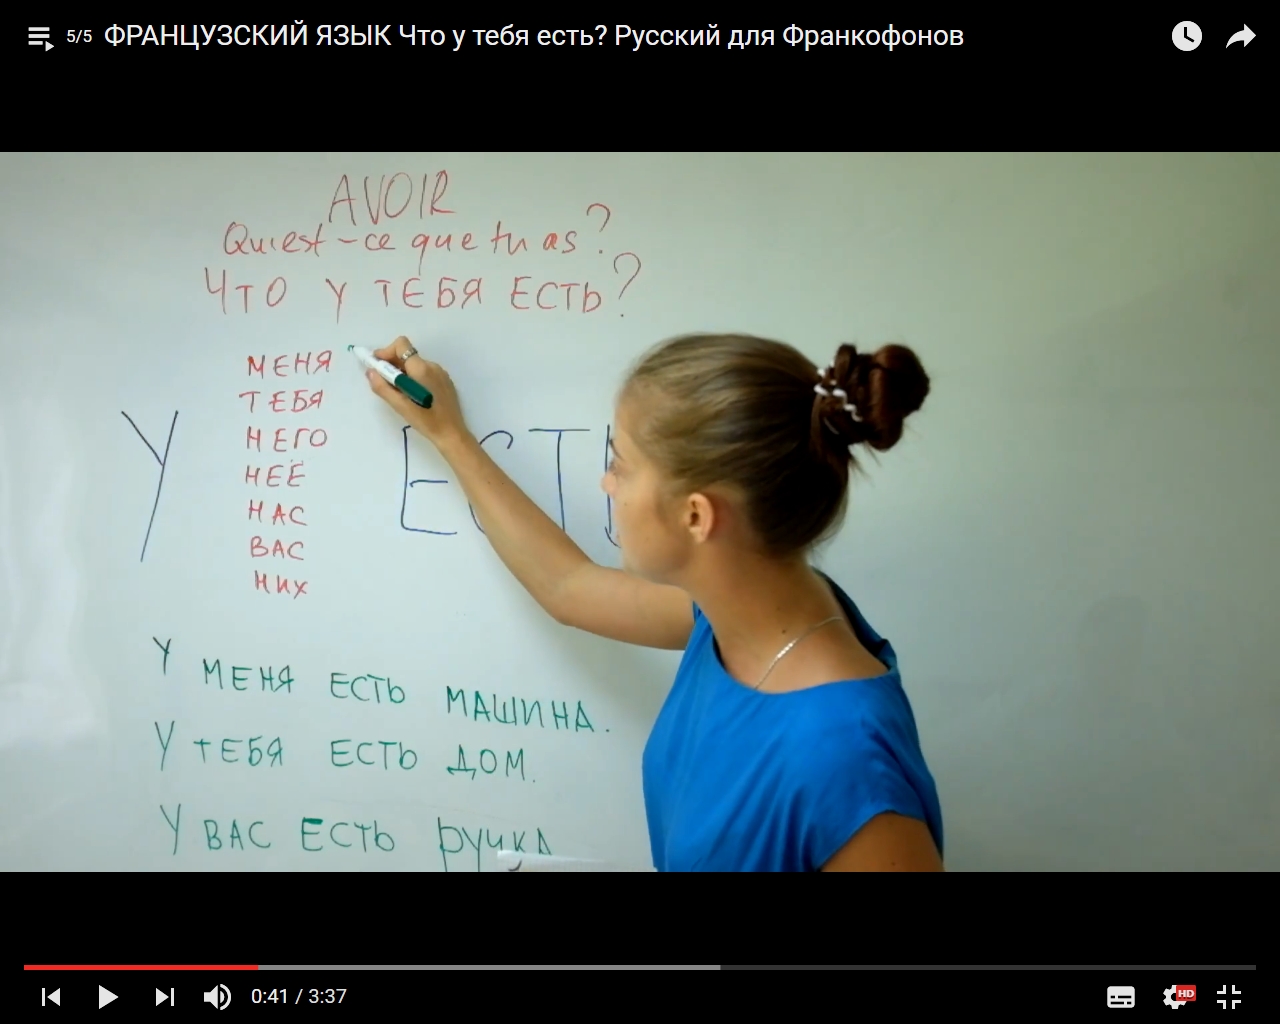 5/5 ФРАНЦУЗСКИЙ ЯЗЫК Что у тебя есть? Русский для Франкофонов
AVOIR
Qu'est-ce que tu as?
ЧТО У ТЕБЯ ЕСТЬ?
МЕНЯ
ТЕБЯ
НЕГО
НЕЁ
НАС
ВАС
НИХ
У ЕСТЬ
У МЕНЯ ЕСТЬ МАШИНА.
У ТЕБЯ ЕСТЬ ДОМ.
У ВАС ЕСТЬ ручкА
0:41 / 3:37
HD